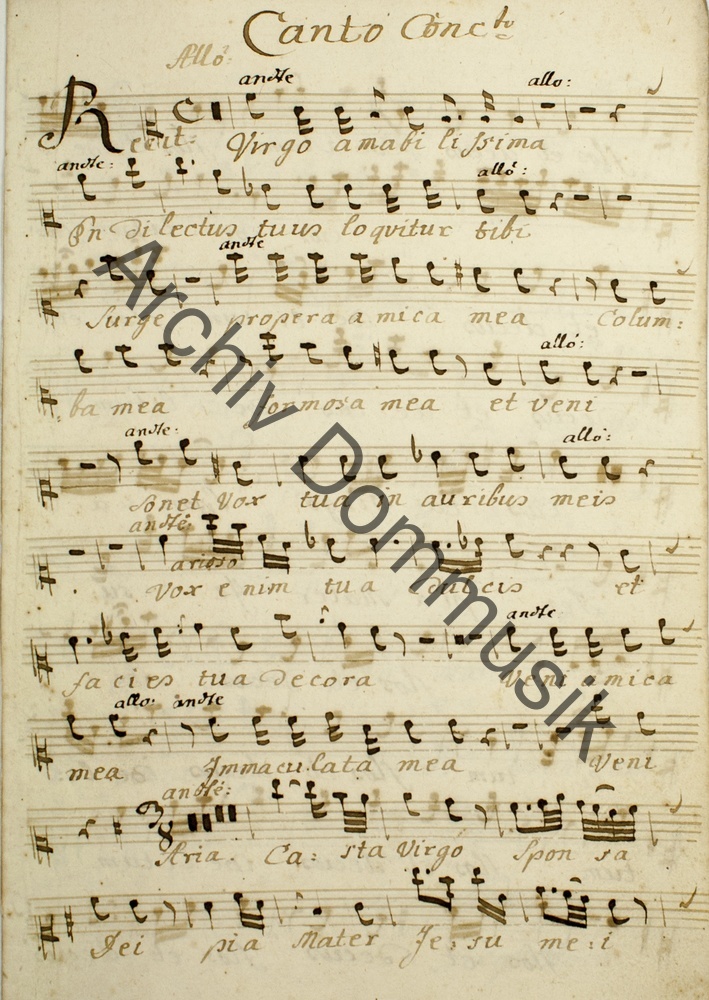 Canto Conc.to
Allo:
andte allo:
Recit: Virgo amabi li ssima
andte: allo:
En dilectus tuus loqvitur tibi
andte
Surge propera amica mea Colum:
allo:
ba mea formosa mea et veni
andte: allo:
sonet Vox tua in auribus meis
andte
arioso
Vox enim tua dulcis et
andte
facies tua decora Veni amica
allo: andte
mea Immaculata mea Veni
andte:
Aria. Ca: sta Virgo Spon sa
Dei pia Mater Je: su me: i
Archiv Dommusik